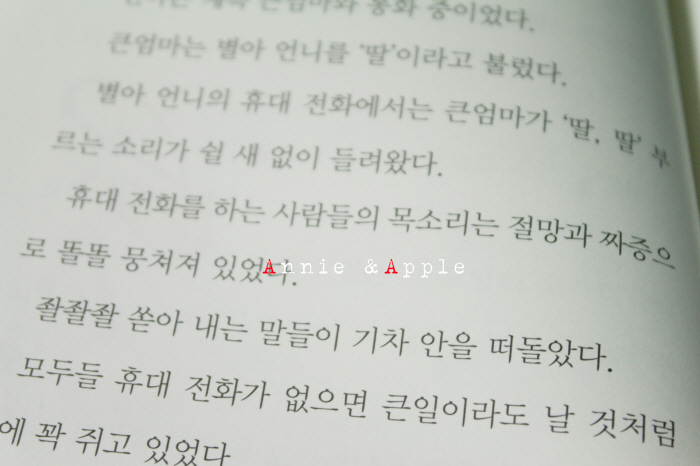 큰엄마와 통화 중이었다.
큰엄마는 별아 언니를 ‘딸’이라고 불렀다.
별아 언니의 휴대 전화에서는 큰엄마가 ‘딸, 딸’ 부
르는 소리가 쉴 새 없이 들려왔다.
휴대 전화를 하는 사람들의 목소리는 절망과 짜증으
로 똘똘 뭉쳐져 있었다.
Annie & Apple
좔좔좔 쏟아 내는 말들이 기차 안을 떠돌았다.
모두들 휴대 전화가 없으면 큰일이라도 날 것처럼
에 꽉 쥐고 있었다